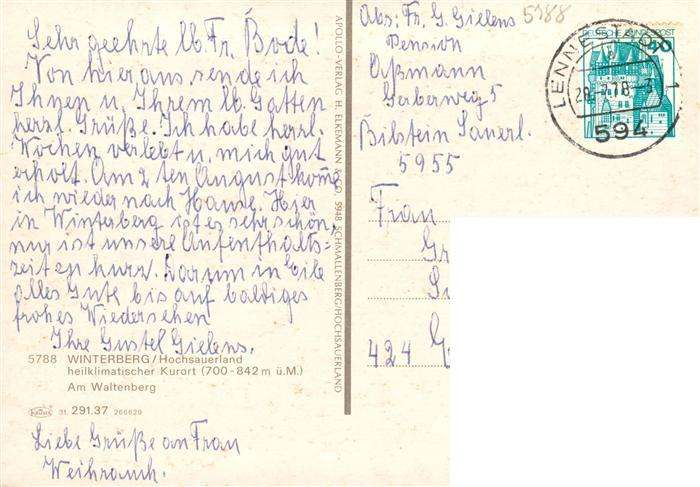 Sehr geehrte lb. Fr. Bode!
Von hier aus sende ich
Ihnen u. Ihrem lb. Gatten
herzl. Grüße. Ich habe herrl.
Wochen verlebt u. mich gut
erholt. Am 2ten August komme
ich wieder nach Hause. Hier
in Winterberg ist es sehr schön,
nur ist unsere Aufenthalts-
zeit zu kurz. Darum in Eile
alles Gute bis auf baldiges
frohes Wiedersehen
Ihre Gustel Gielens.
5788 WINTERBERG/Hochsauerland
heilklimatischer Kurort (700-842 m ü.M.)
Am Waltenberg
31. 291.37 266629
Liebe Grüße an Frau
Weihrauch.
APOLLO-VERLAG H. ELKEMANN & CO. 5948 SCHMALLENBERG/HOCHSAUERLAND
Abs: Fr. G. Gielens
Pension
Aßmann
Gerberweg 5
Bilstein Sauerl.
5955
5988
DEUTSCHE BUNDESPOST
40
LENNESTADT 1
28.-7.78.-
594
Frau
424